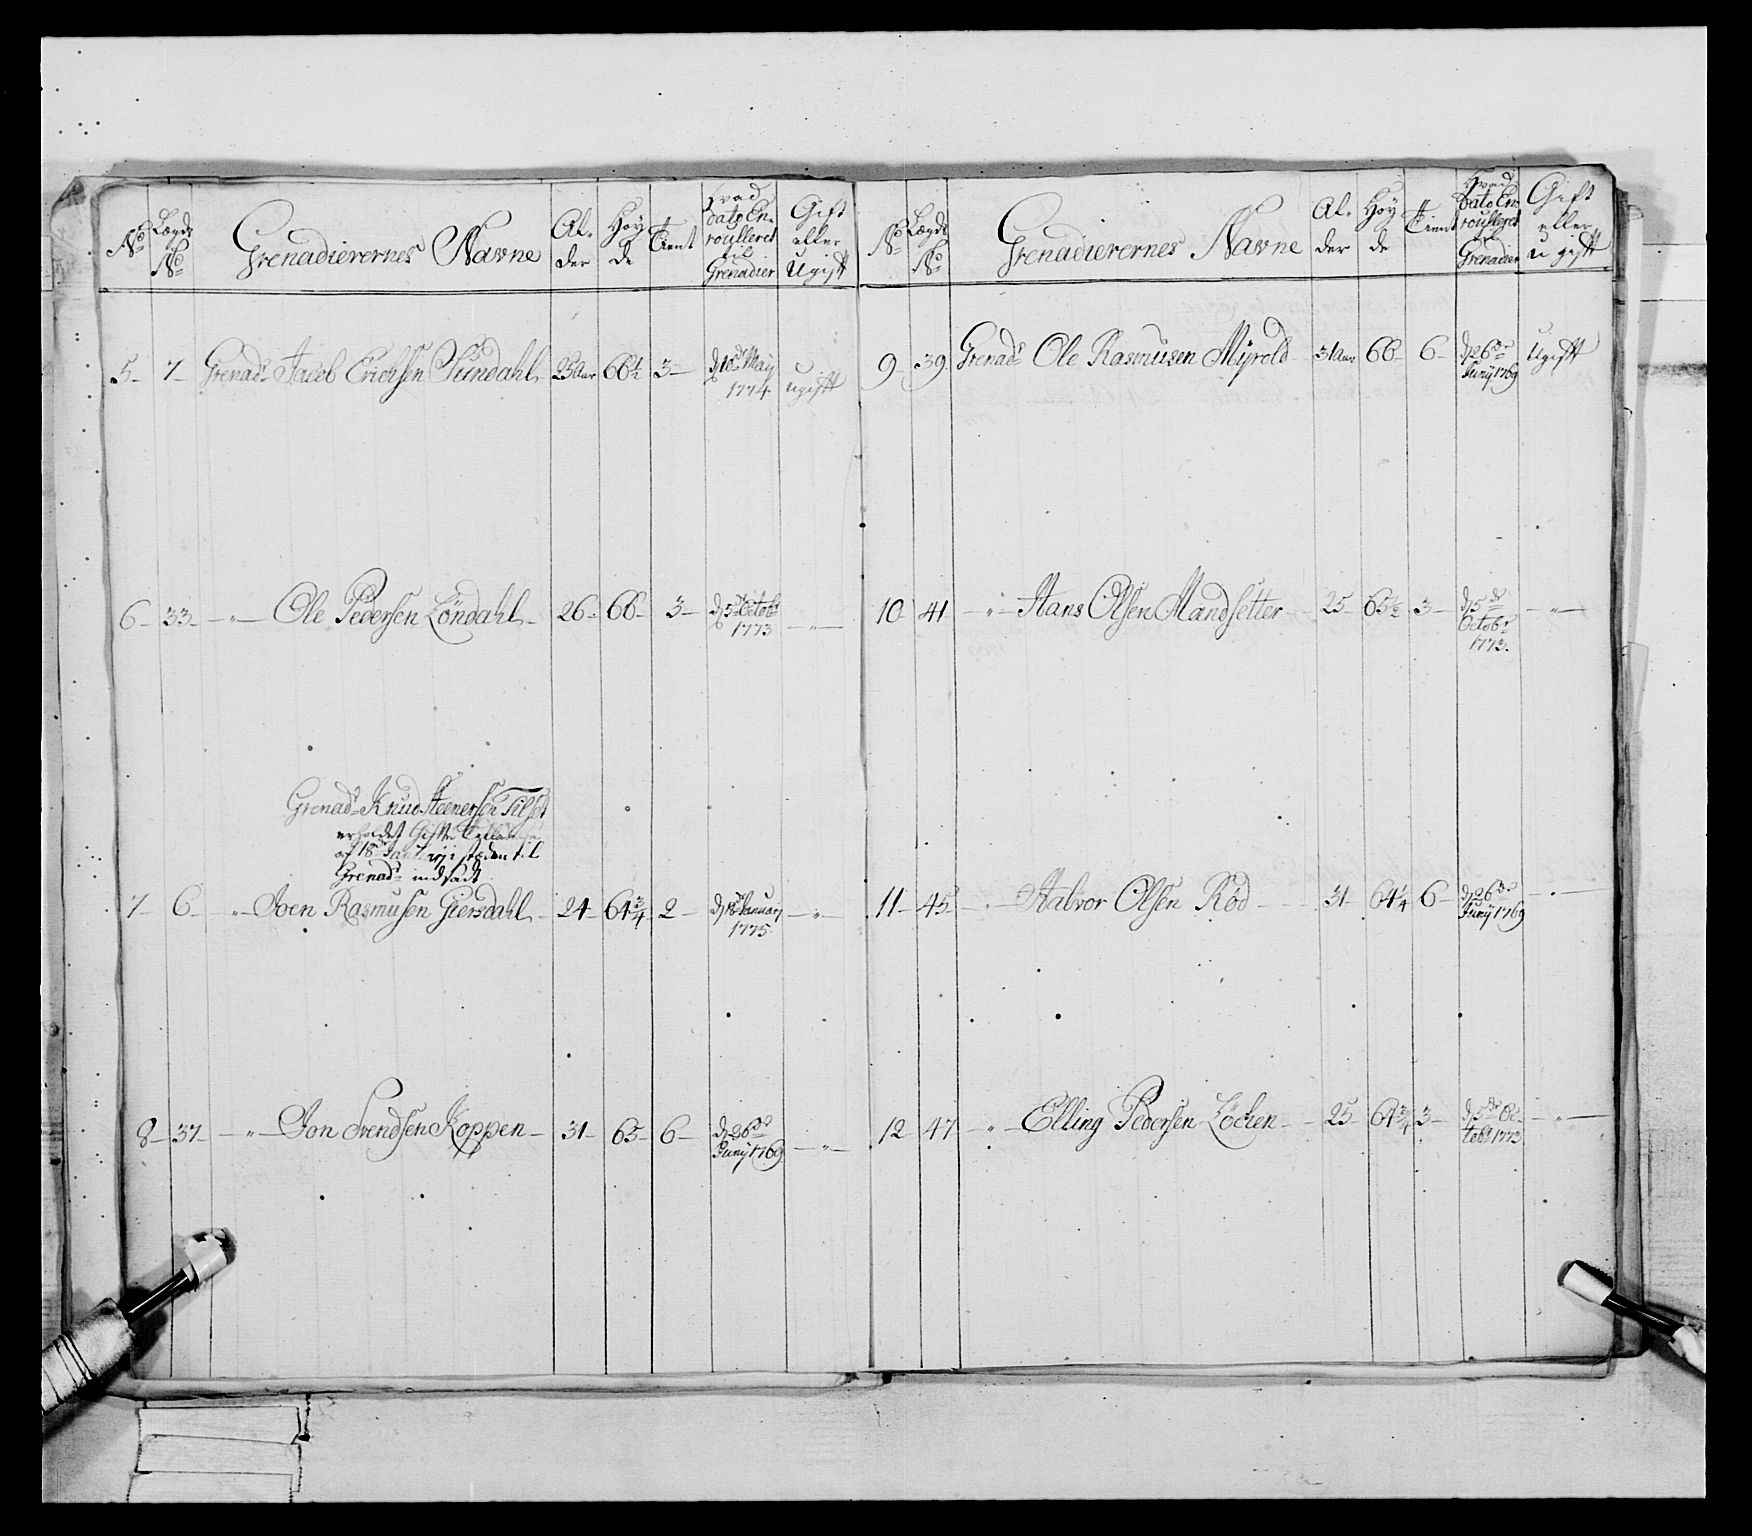 No Lægds No Grenadierernes Navne Alder Høyde Tient Hvad dato Enroulleret til Grenadier Gift eller Ugift
5 7 Grenadr Jacob Erichsen Sundahl 25 Aar 66½ 3 d 18de May 1774 Ugift
6 33 " Ole Pedersen Löndahl 26 66 3 d 5te Octobr 1773 "
Grenadr Knud Steenersen Tilset
erholdet Gifte
af 18de Januarj i steden til
Grenadr indsadt
7 6 " Joen Rasmusen Giersdahl 24 64¾ 2 d 18de Januarj 1775 "
8 37 " Jon Svendsen Koppen 31 65 6 d 26de Junij 1769 "
No Lægds No Grenadierernes Navne Alder Høyde Tient Hvad dato Enroulleret til Grenadier Gift eller Ugift
9 39 Grenadr Ole Rasmusen Myrold 31 Aar 66 6 d 26de Junij 1769 Ugift
10 41 " Hans Olsen Mandsetter 25 65½ 3 d 5te Octobr 1773 "
11 45 " Halvor Olsen Rød 31 64¼ 6 d 26de Junij 1769 "
12 47 " Elling Pedersen Löcken 25 64¾ 3 d 5te Octobr 1773 "